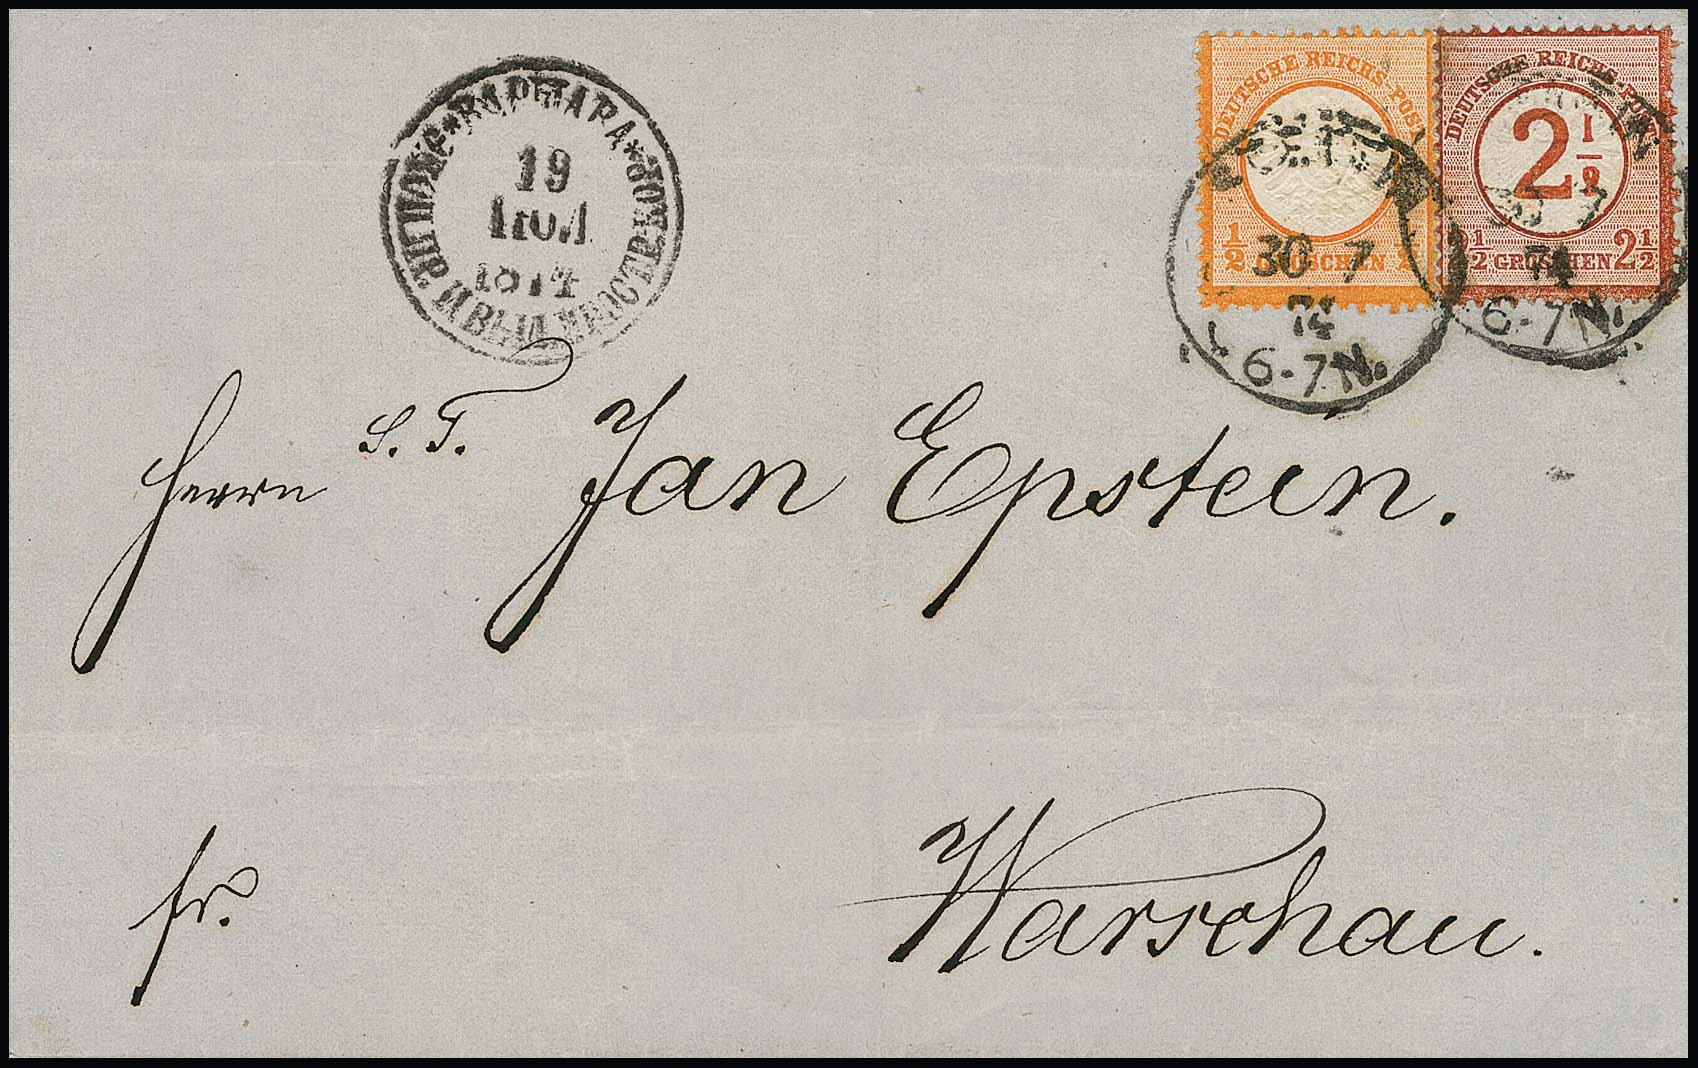 ВАРШАВА
19
ІЮЛ
1874
DEUTSCHE REICHS-POST
½ GROSCHEN ½
DEUTSCHE REICHS-POST
2½
2½ GROSCHEN 2½
30 7
74
6-7N.
74
6-7N.
Herrn S. T. Jan Epstein.
fr.
Warschau.